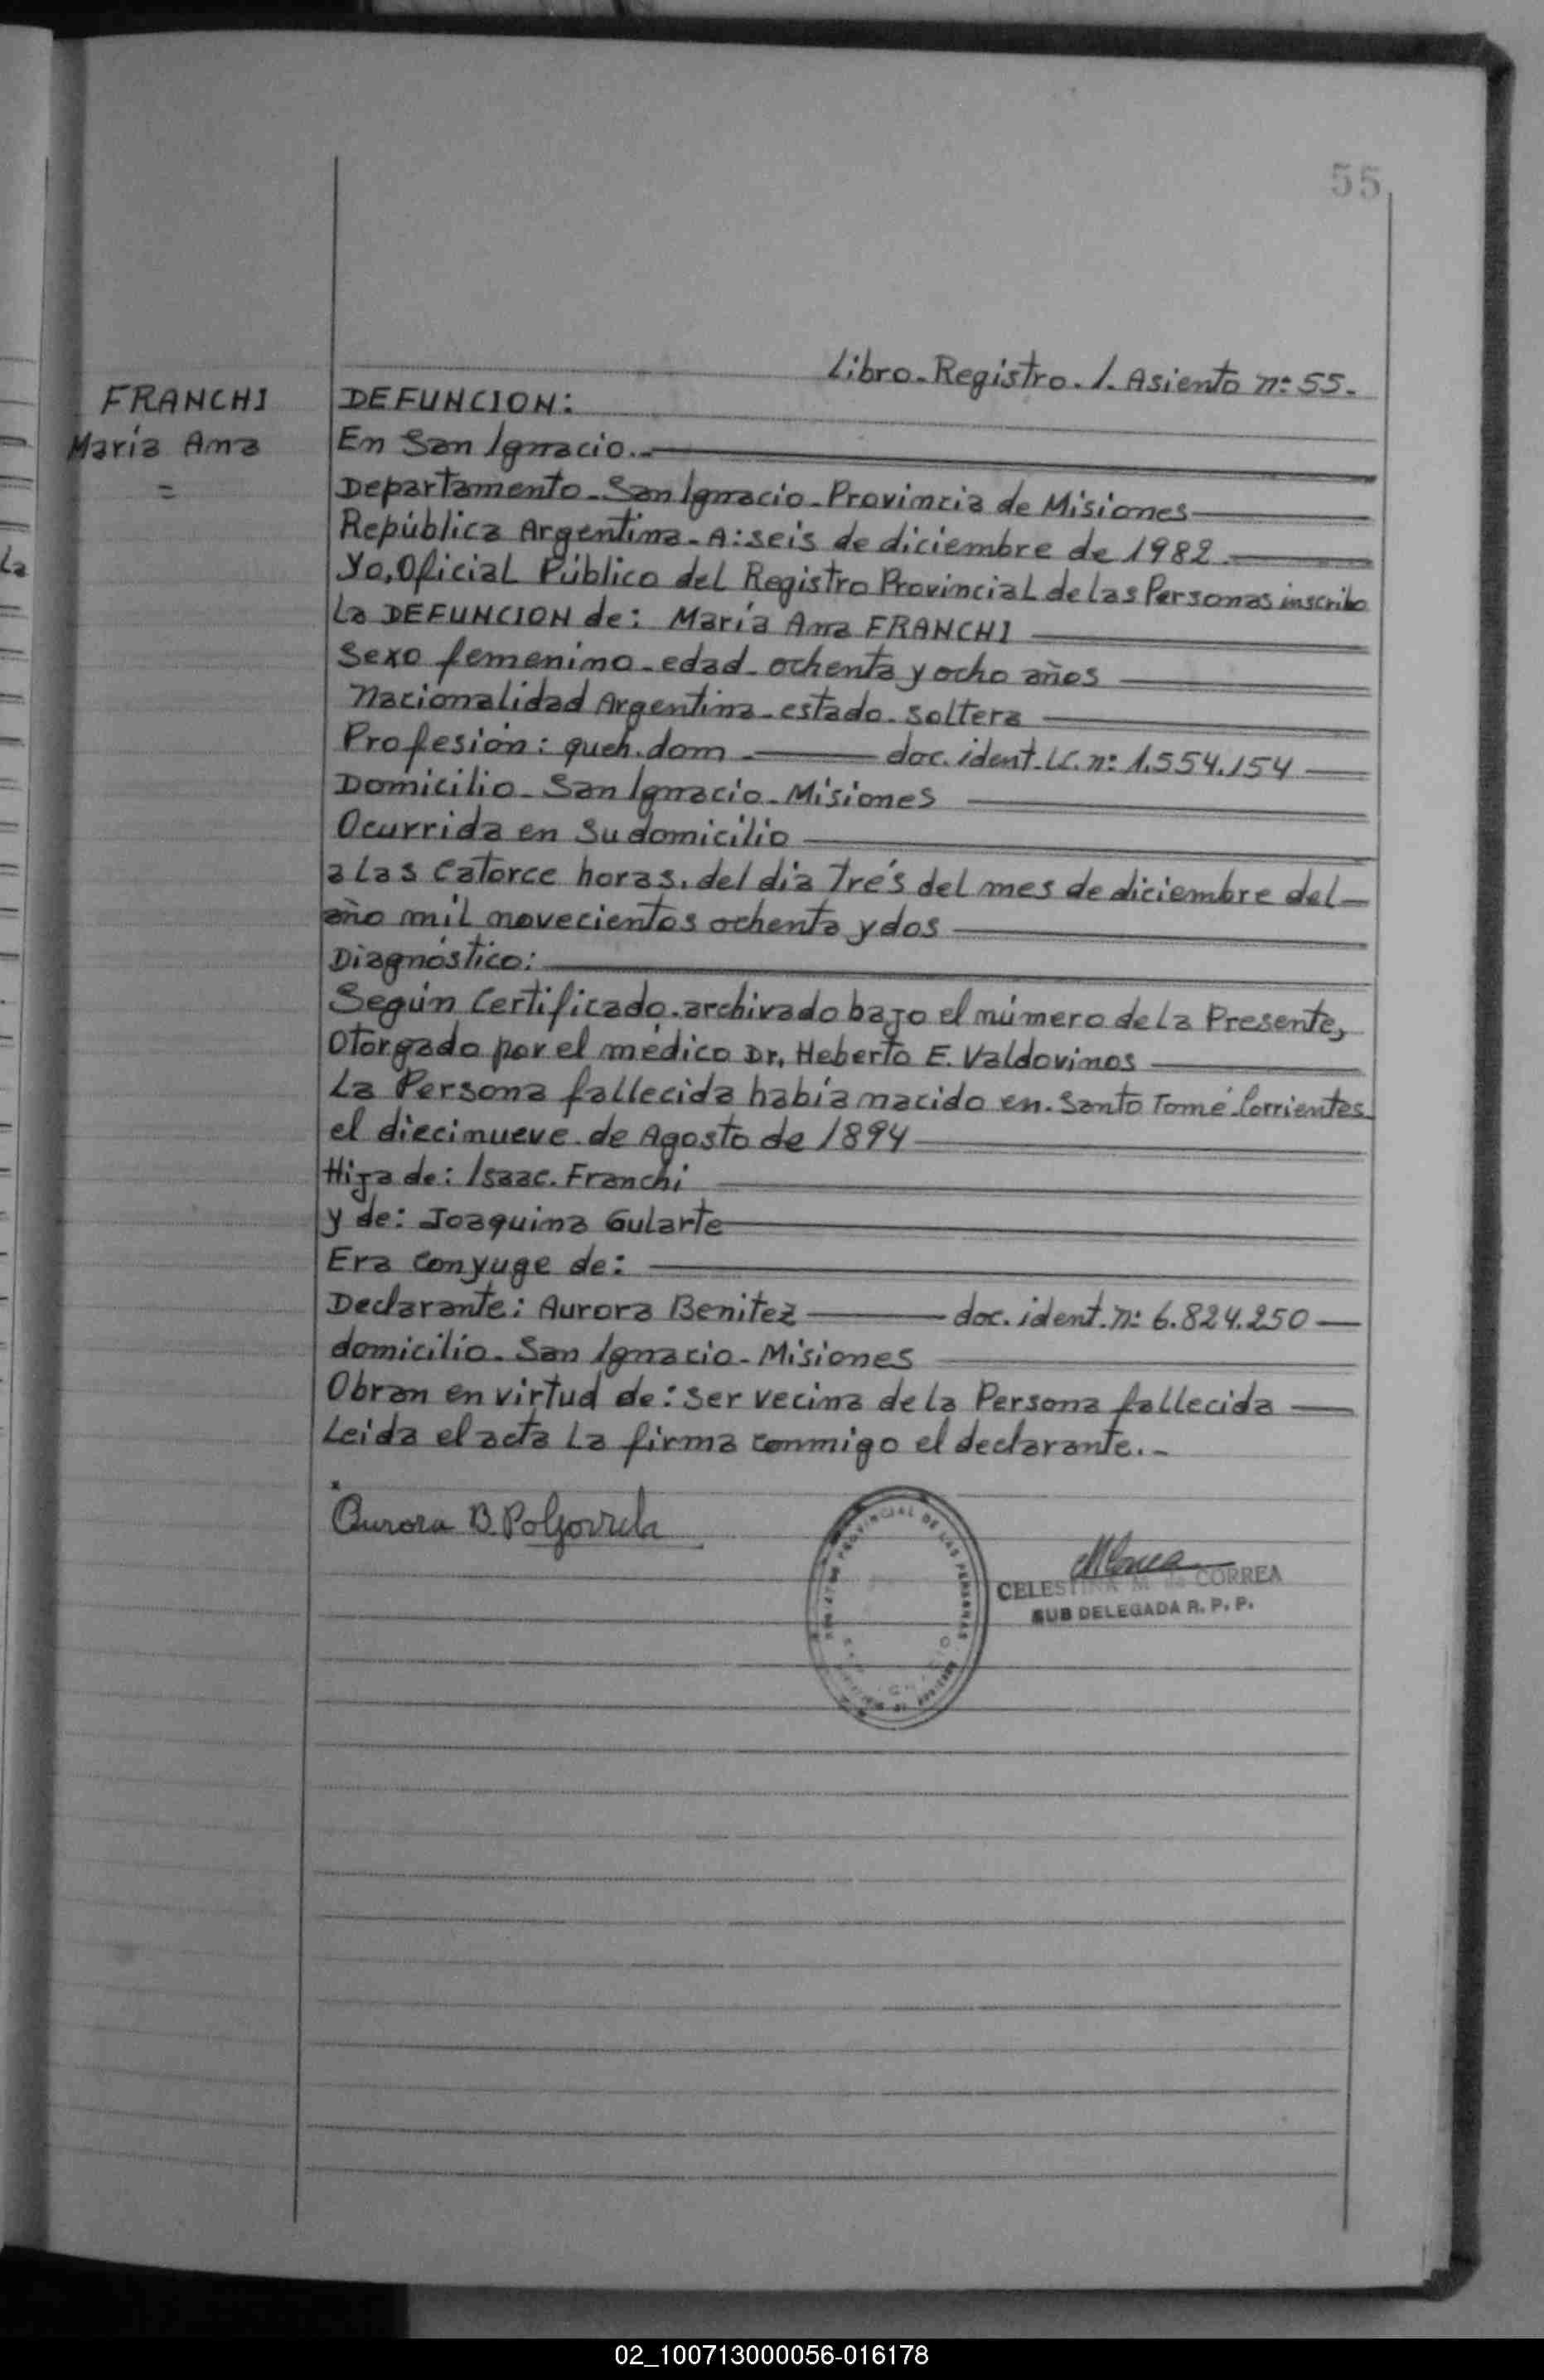 55
Libro-Registro. 1. Asiento n: 55.
FRANCHI
María Ana
=
DEFUNCION:
En San Ignacio.-
Departamento-San Ignacio-Provincia de Misiones
República Argentina-A: seis de diciembre de 1982
Yo, Oficial Público del Registro Provincial de las Personas inscribo
La DEFUNCION de: María Ana FRANCHI
Sexo femenino-edad-ochenta y ocho años
Nacionalidad Argentina-estado-soltera
Profesión: queh. dom. doc. ident. LC. n: 1.554.154
Domicilio-San Ignacio-Misiones
Ocurrida en Su domicilio
a Las catorce horas, del día trés del mes de diciembre del
año mil novecientos ochenta y dos
Diagnóstico:
Según Certificado-archivado bajo el número de la Presente,
Otorgado por el médico Dr. Heberto E. Valdovinos
La Persona fallecida había nacido en-Santo Tomé-Corrientes
el diecinueve-de Agosto de 1894
Hija de: Isaac. Franchi
y de: Joaquina Gularte
Era Conyuge de:
Declarante: Aurora Benitez doc. ident. n: 6.824.250
domicilio-San Ignacio-Misiones
Obran en virtud de: ser vecina de la Persona fallecida
Leida el acta La firma conmigo el declarante.-
Aurora B.
PROVINCIAL DE LAS PERSONAS
CELESTINA M. de CORREA
SUB DELEGADA R. P. P.
La
02_100713000056-016178